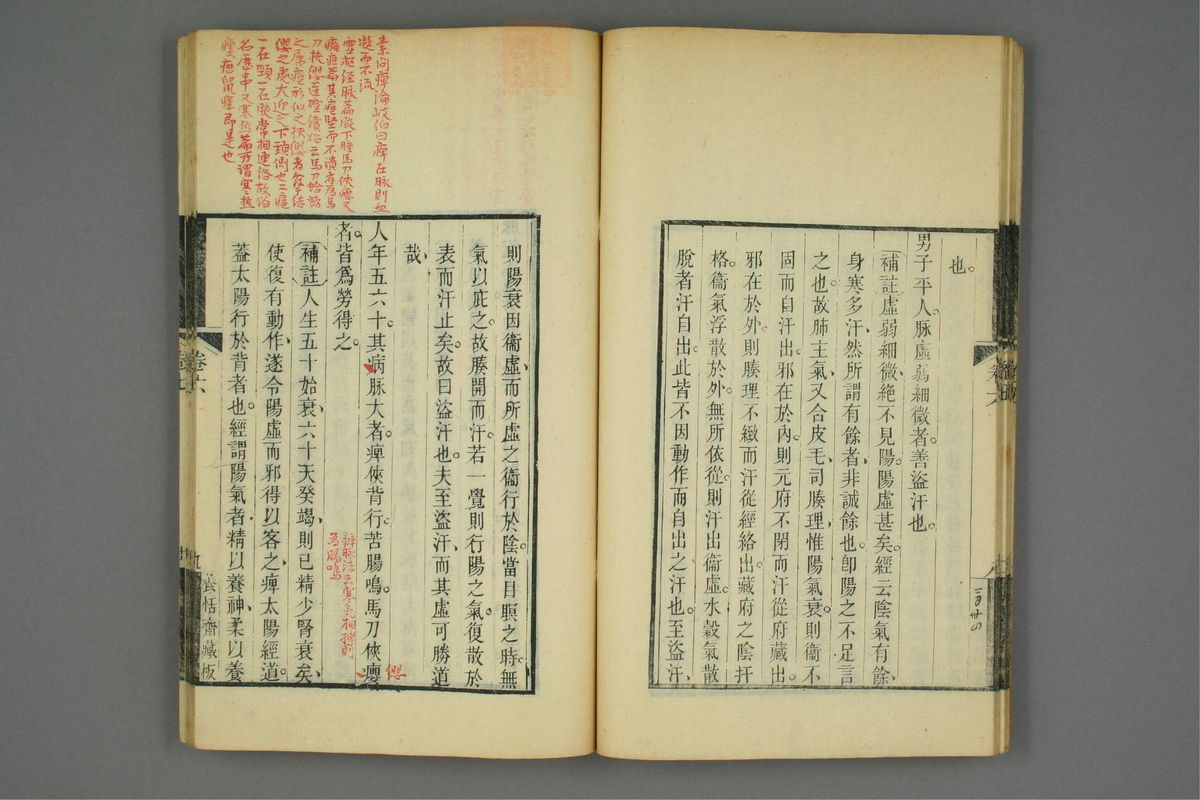 也。
男子平人。脉虛弱細微者。善盜汗也。
補註虛弱細微、絶不見陽。陽虛甚矣。經云陰氣有餘、
身寒多汗、然所謂有餘者、非誠餘也。卽陽之不足言
之也。故肺主氣、又合皮毛、司腠理、惟陽氣衰、則衞不
固而自汗出。邪在於內、則元府不閉而汗從府藏出。
邪在於外、則腠理不緻而汗從經絡出。藏府之陰扞
格。衞氣浮散於外、無所依從。則汗出衞虛。水穀氣散
脫者汗自出。此皆不因動作而自出之汗也。至盜汗、
則陽衰因衞虛、而所虛之衞行於陰、當目瞑之時。無
氣以庇之。故腠開而汗。若一覺則行陽之氣、復散於
表而汗止矣。故曰盜汗也。夫至盜汗、而其虛可勝道
哉、
人年五六十。其病脉大者。痺俠背行。苦腸鳴。馬刀俠癭
者。皆爲勞得之。
補註人生五十始衰、六十天癸竭、則已精少腎衰矣、
使復有動作、遂令陽虛而邪得以客之、痺太陽經道。
蓋太陽行於背者也。經謂陽氣者精以養神、柔以養
卷六
九
養恬齋藏板
素問痺論岐伯曰痺在脉則血
凝而不流
靈枢経脉篇腋下腫馬刀俠癭又
癰疽篇其癰堅而不潰者爲馬
刀挾纓
一在頸一在腋常相連
寒熱
瘰癧鼠瘻即是也
辨脉法云寒氣相搏則
爲腸鳴
纓